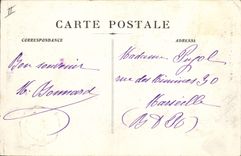 II
CARTE POSTALE
CORRESPONDANCE
ADRESSE
Bon souvenir
M. Bonnard
Madame Pujol
rue des Minimes 30
Marseille
(B D R)